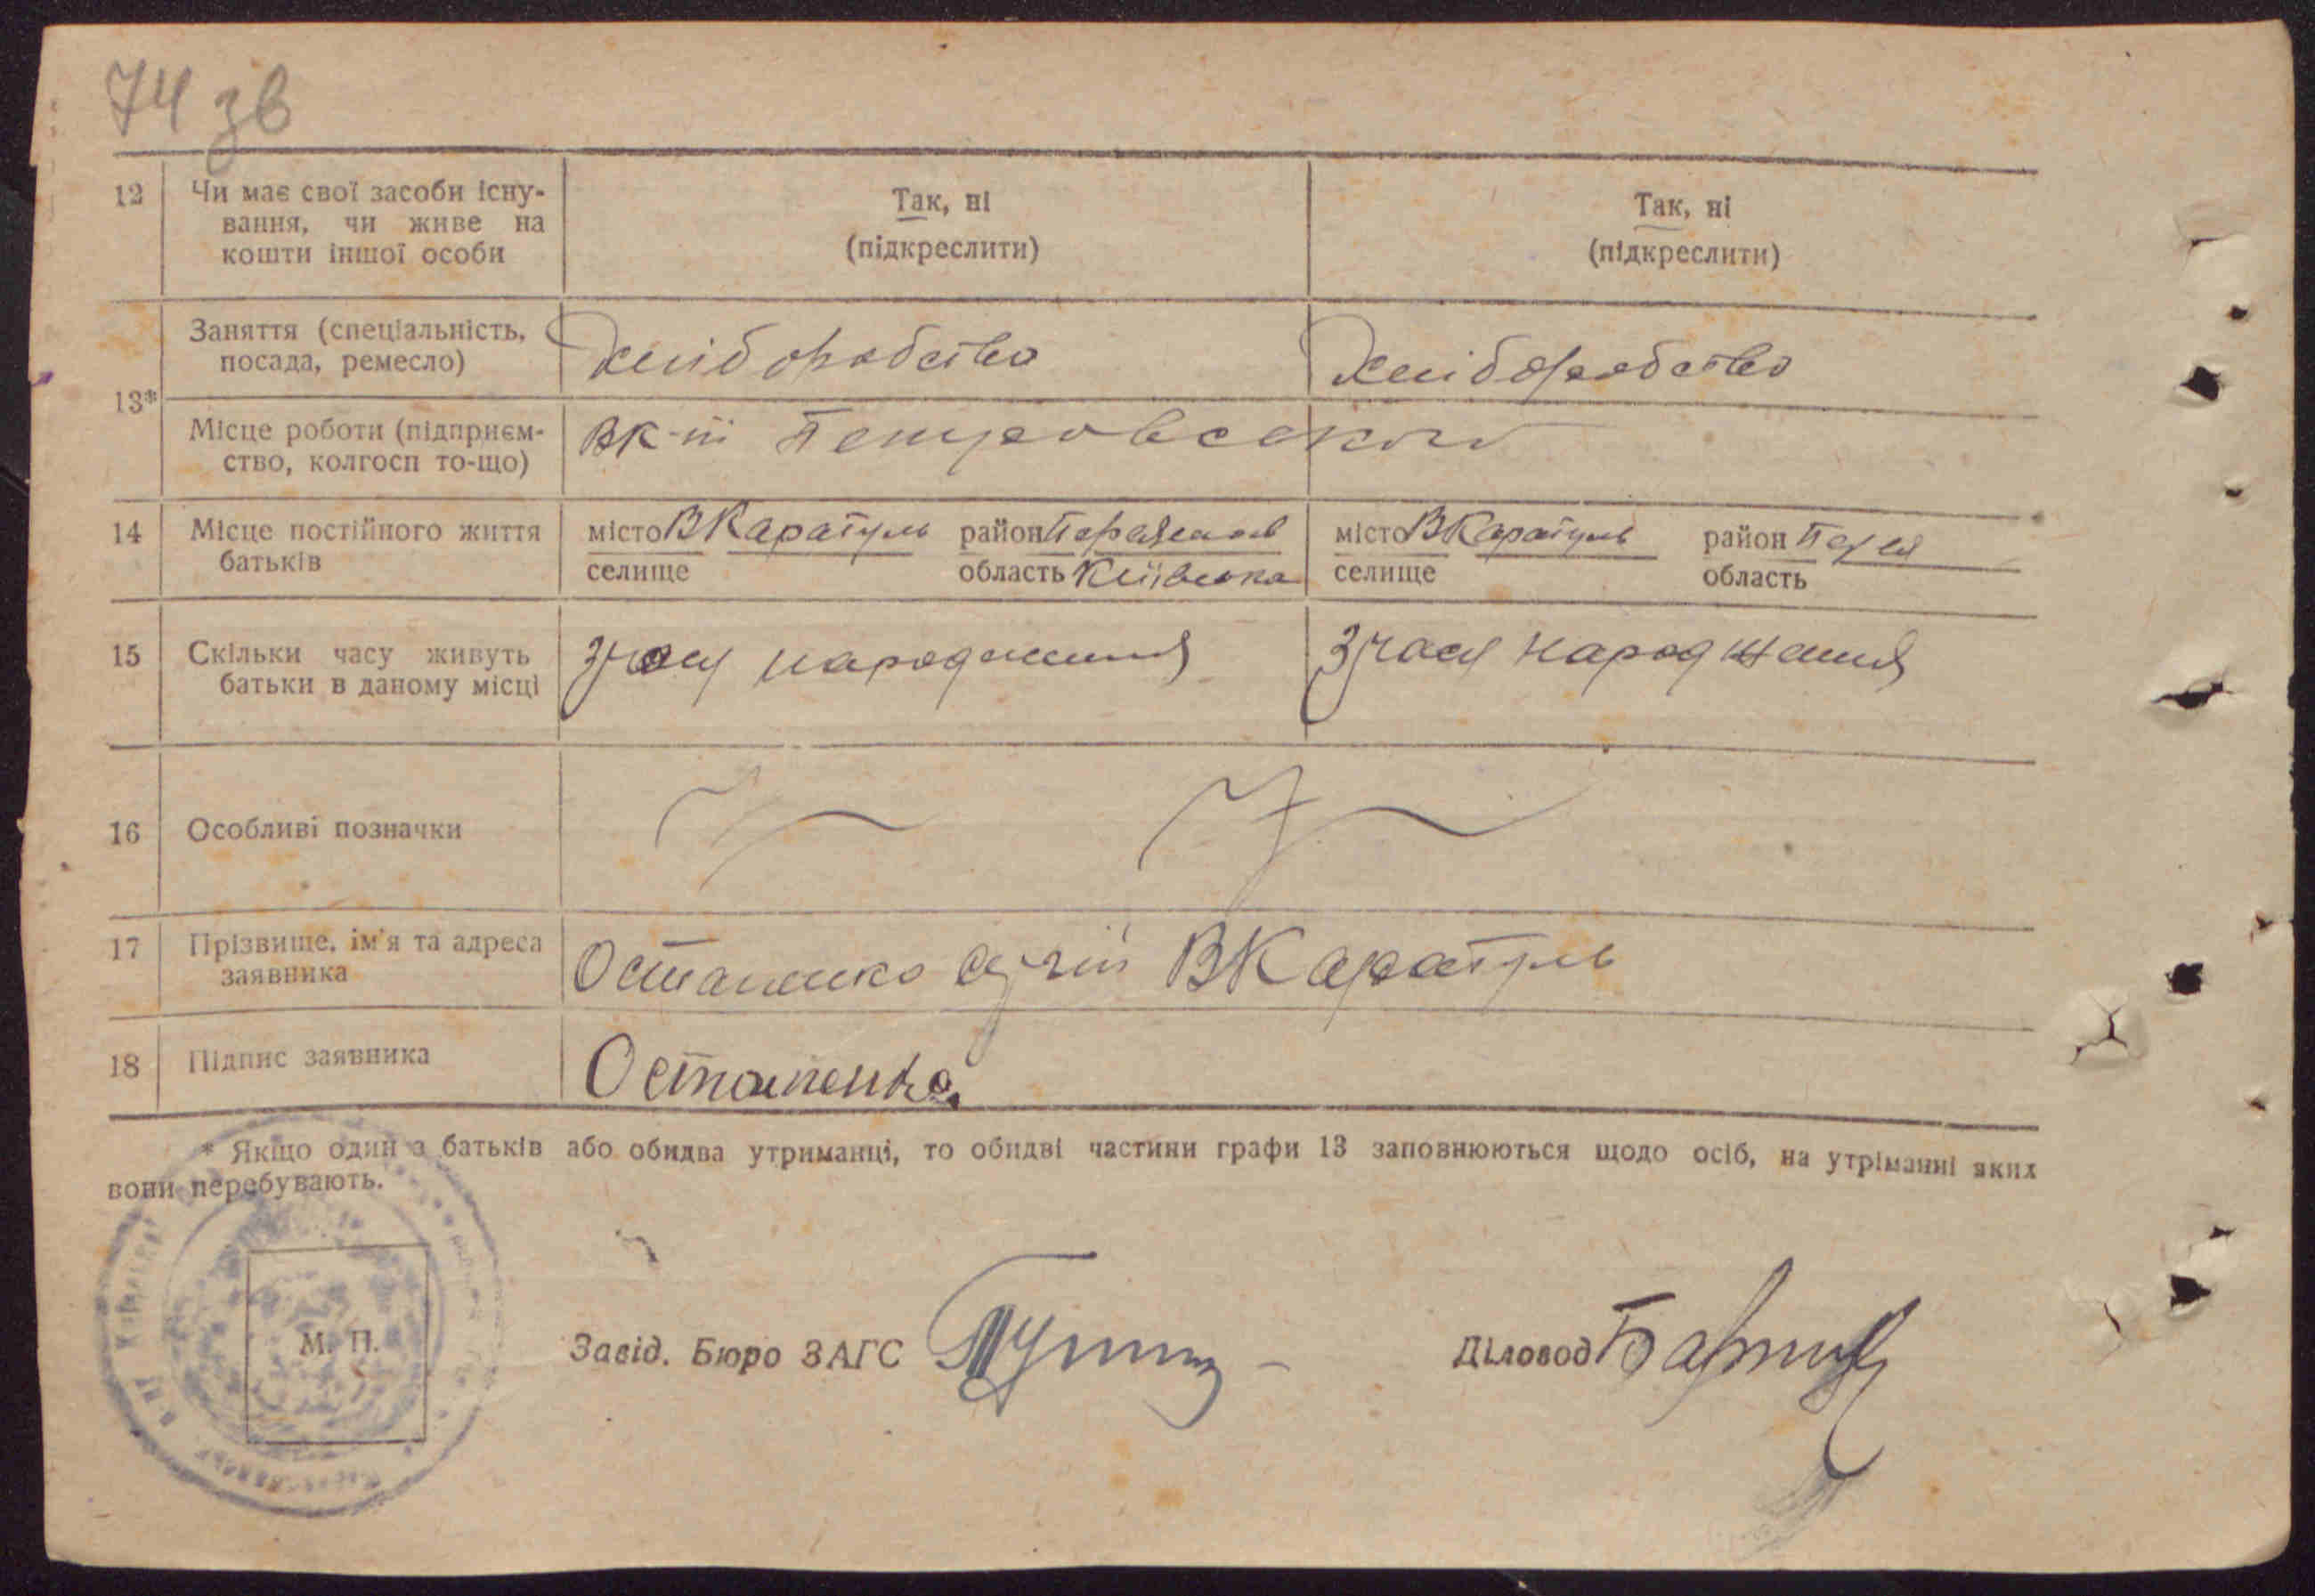 74 зв
12 Чи має свої засоби існу-
вання, чи живе на
кошти іншої особи
Так, ні
(підкреслити)
Так, ні
(підкреслити)
13*
Заняття (спеціальність,
посада, ремесло)
хліборобство
хліборобство
Місце роботи (підприєм-
ство, колгосп то-що)
Петровського
14 Місце постійного життя
батьків
місто ВКаратуль район
селище область Київська
місто ВКаратуль район
селище область
15 Скільки часу живуть
батьки в даному місці
З часу народження
З часу народження
16 Особливі позначки
17 Прізвище, ім'я та адреса
заявника
Остапенко Сергій ВКаратуль
18 Підпис заявника
Остапенко
* Якщо один з батьків або обидва утриманці, то обидві частини графи 13 заповнюються щодо осіб, на утріманні яких
вони перебувають.
М. П.
Завід. Бюро ЗАГС
Діловод